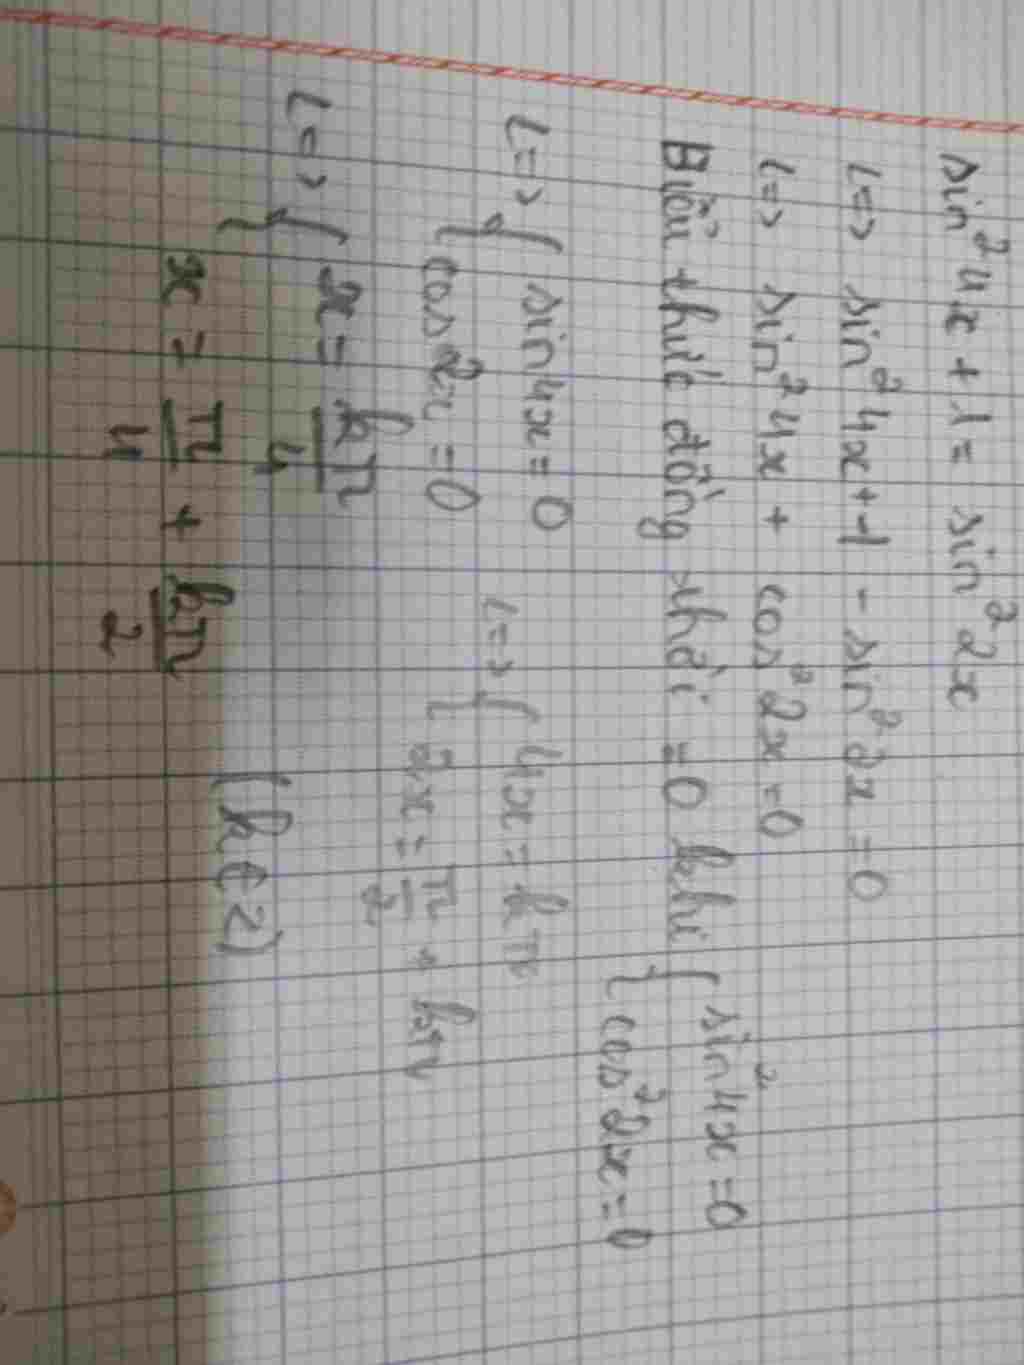 sin²4x + 1 = sin²2x
<=> sin²4x + 1 - sin²2x = 0
<=> sin²4x + cos²2x = 0
Biểu thức đồng thời = 0 khi { sin²4x = 0
cos²2x = 0
<=> { sin4x = 0
cos2x = 0
<=> { 4x = kπ
2x = π/2 + kπ
<=> { x = kπ/4
x = π/4 + kπ/2
(k ∈ Z)